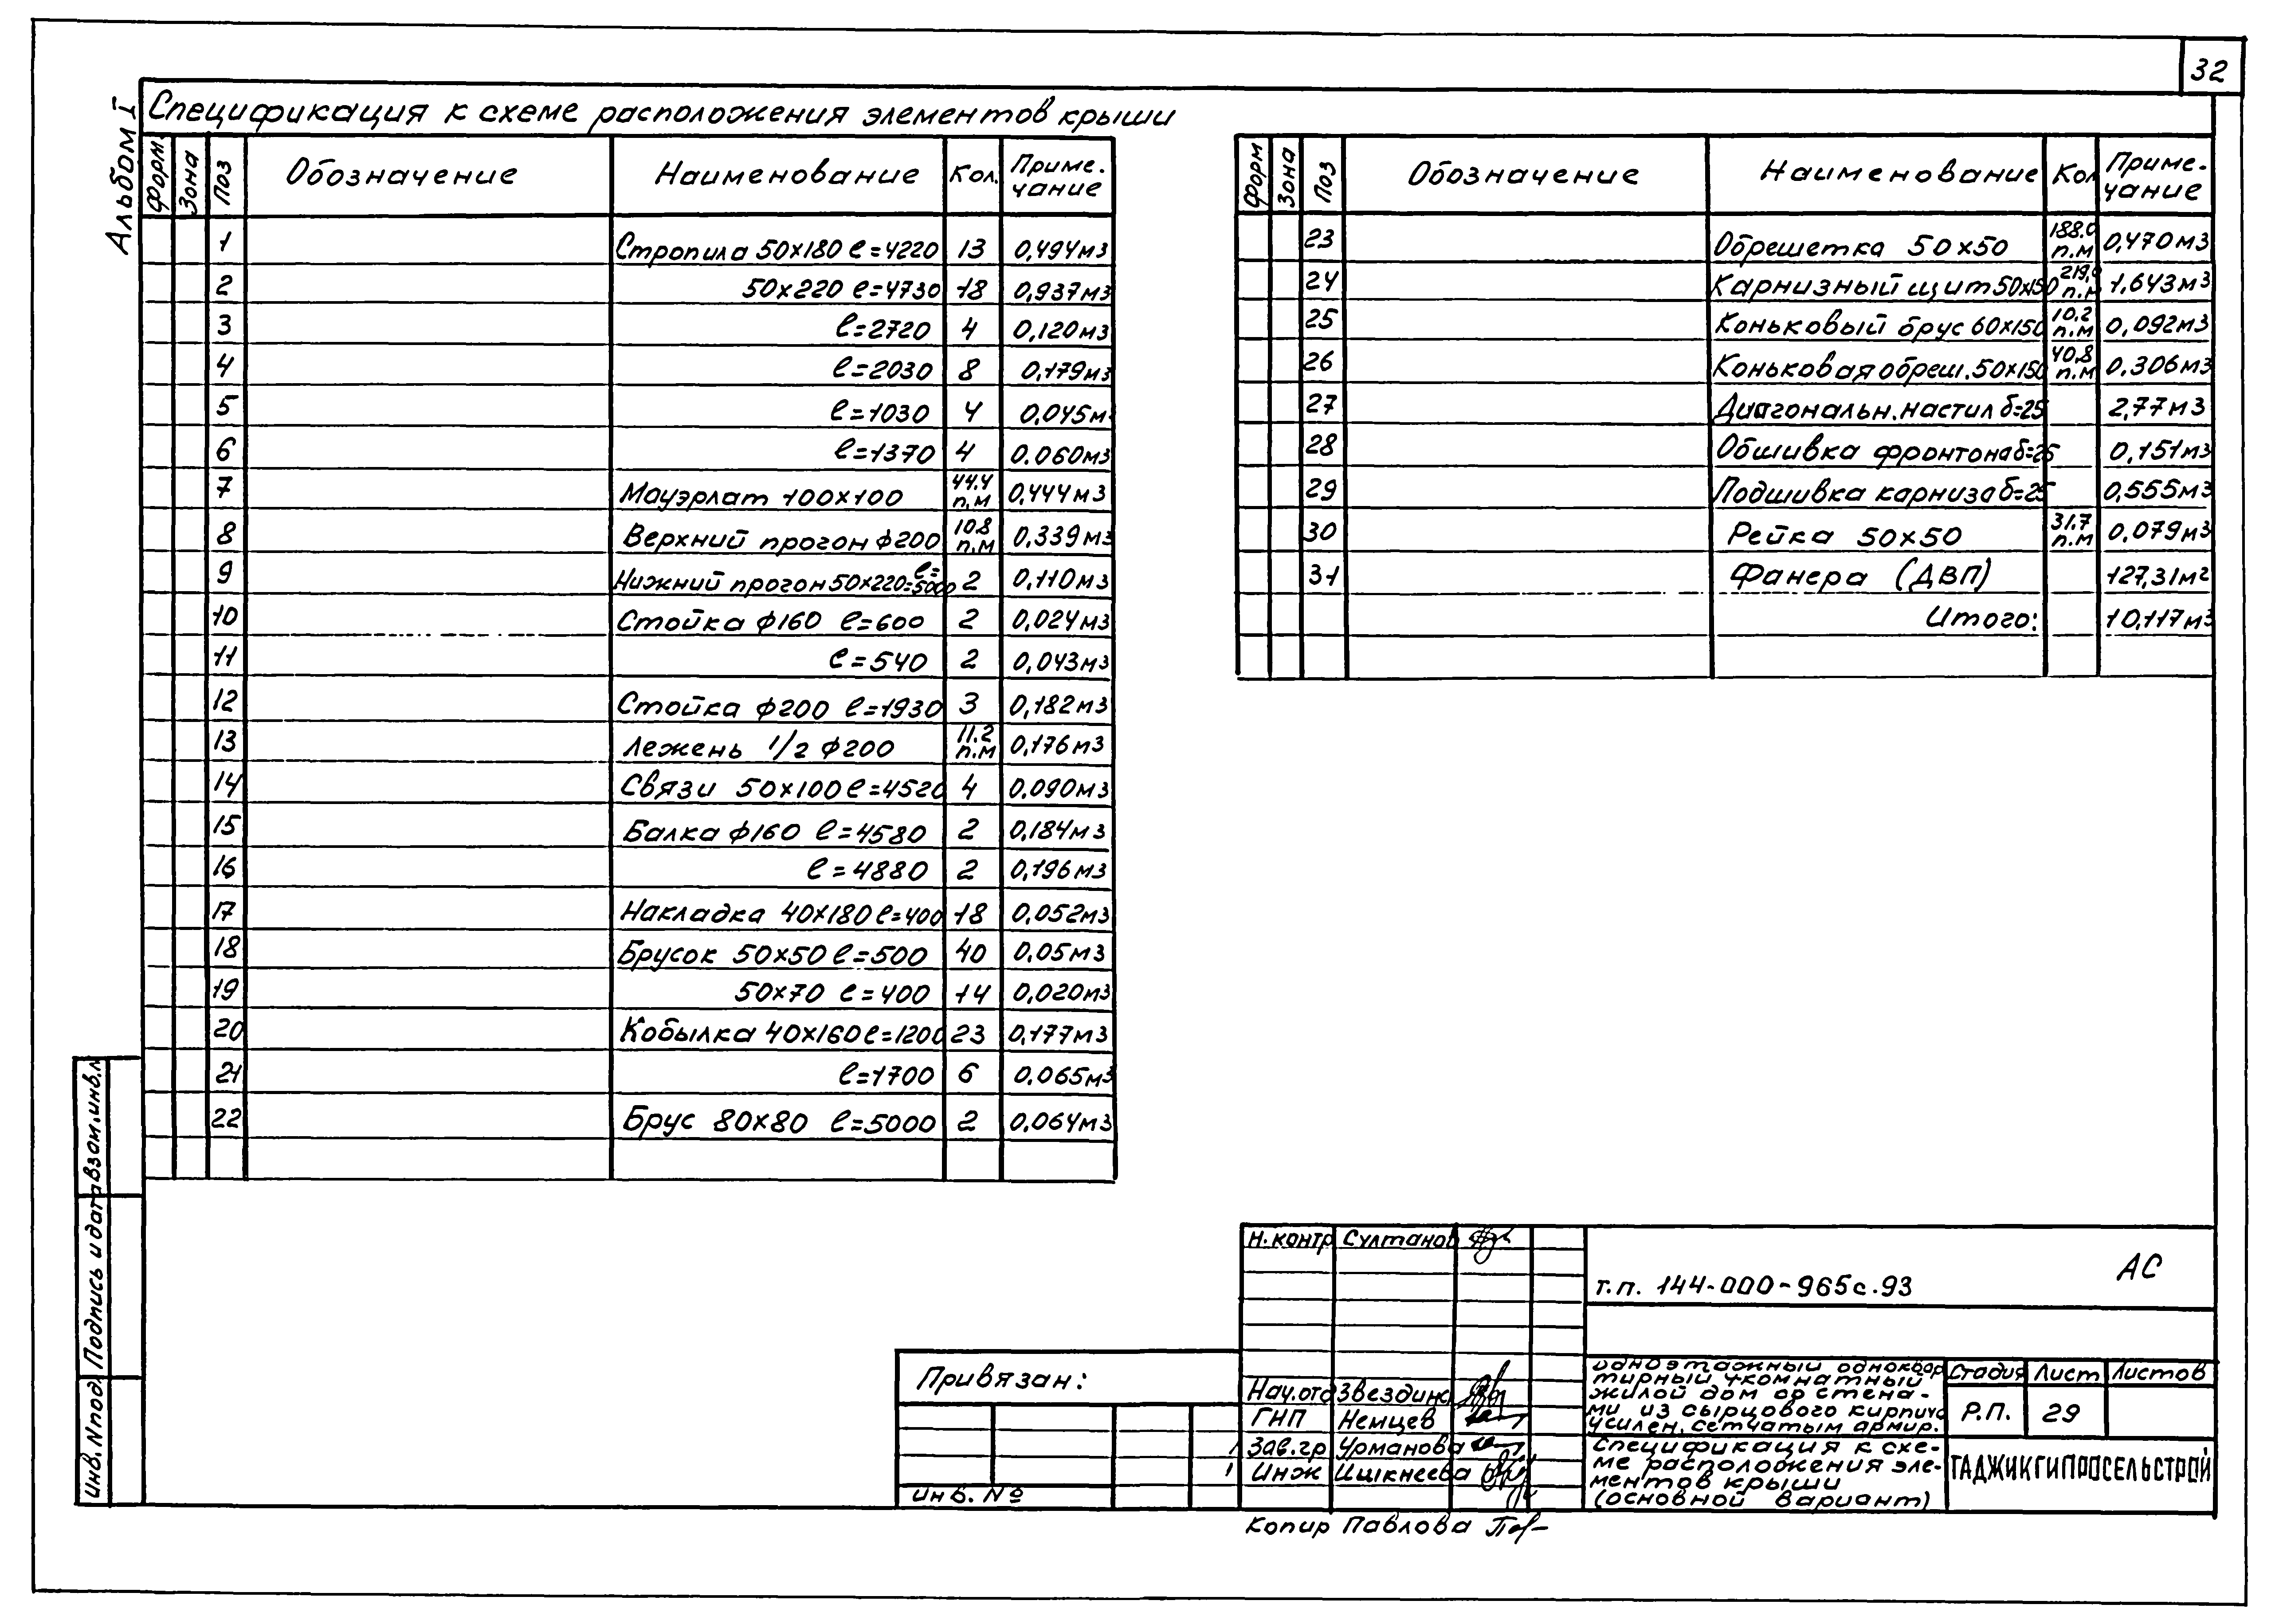 32
Альбом I
Спецификация к схеме расположения элементов крыши
Форм. Зона Поз Обозначение Наименование Кол. Приме-чание
1 Стропила 50х180 ℓ=4220 13 0,494м3
2 50х220 ℓ=4730 18 0,937м3
3 ℓ=2720 4 0,120м3
4 ℓ=2030 8 0,179м3
5 ℓ=1030 4 0,045м3
6 ℓ=1370 4 0.060м3
7 Мауэрлат 100х100 44.4 п,м 0,444м3
8 Верхний прогон ф200 10.8 п.м 0,339м3
9 Нижний прогон 50х220 ℓ=5000 2 0,110м3
10 Стойка ф160 ℓ=600 2 0,024м3
11 ℓ=540 2 0,043м3
12 Стойка ф200 ℓ=1930 3 0,182м3
13 Лежень 1/2 ф200 11.2 п.м 0,176м3
14 Связи 50х100 ℓ=4520 4 0,090м3
15 Балка ф160 ℓ=4580 2 0,184м3
16 ℓ=4880 2 0,196м3
17 Накладка 40х180 ℓ=400 18 0,052м3
18 Брусок 50х50 ℓ=500 40 0,05м3
19 50х70 ℓ=400 14 0,020м3
20 Кобылка 40х160 ℓ=1200 23 0,177м3
21 ℓ=1700 6 0.065м3
22 Брус 80х80 ℓ=5000 2 0,064м3
Форм Зона Поз Обозначение Наименование Кол Приме-чание
23 Обрешетка 50х50 188.0 п.м 0,470м3
24 Карнизный щит 50х150 219,0 п.м 1,643м3
25 Коньковый брус 60х150 10.2 п.м 0,092м3
26 Коньковая обреш. 50х150 40,8 п.м 0,306м3
27 Диагональн. настил б=25 2,77м3
28 Обшивка фронтона б=25 0,151м3
29 Подшивка карниза б=25 0,555м3
30 Рейка 50х50 31.7 п.м 0,079м3
31 Фанера (ДВП) 127,31м2
Итого: 10,117м3
Инв. Nподл Подпись и дата Взам.инв.N
Привязан:
Инв. №
Н.контр Султанов
Нач.отд Звездин
ГНП Немцев
Зав.гр Урманова
Инж Ишкнеева
т.п. 144-000-965с.93 АС
Одноэтажный одноквар
тирный 4комнатный
жилой дом со стена-
ми из сырцового кирпича
усилен. сетчатым армир.
Стадия Лист Листов
Р.П. 29
Спецификация к схе-
ме расположения эле-
ментов крыши
(основной вариант)
ТАДЖИКГИПРОСЕЛЬСТРОЙ
Копир Павлова